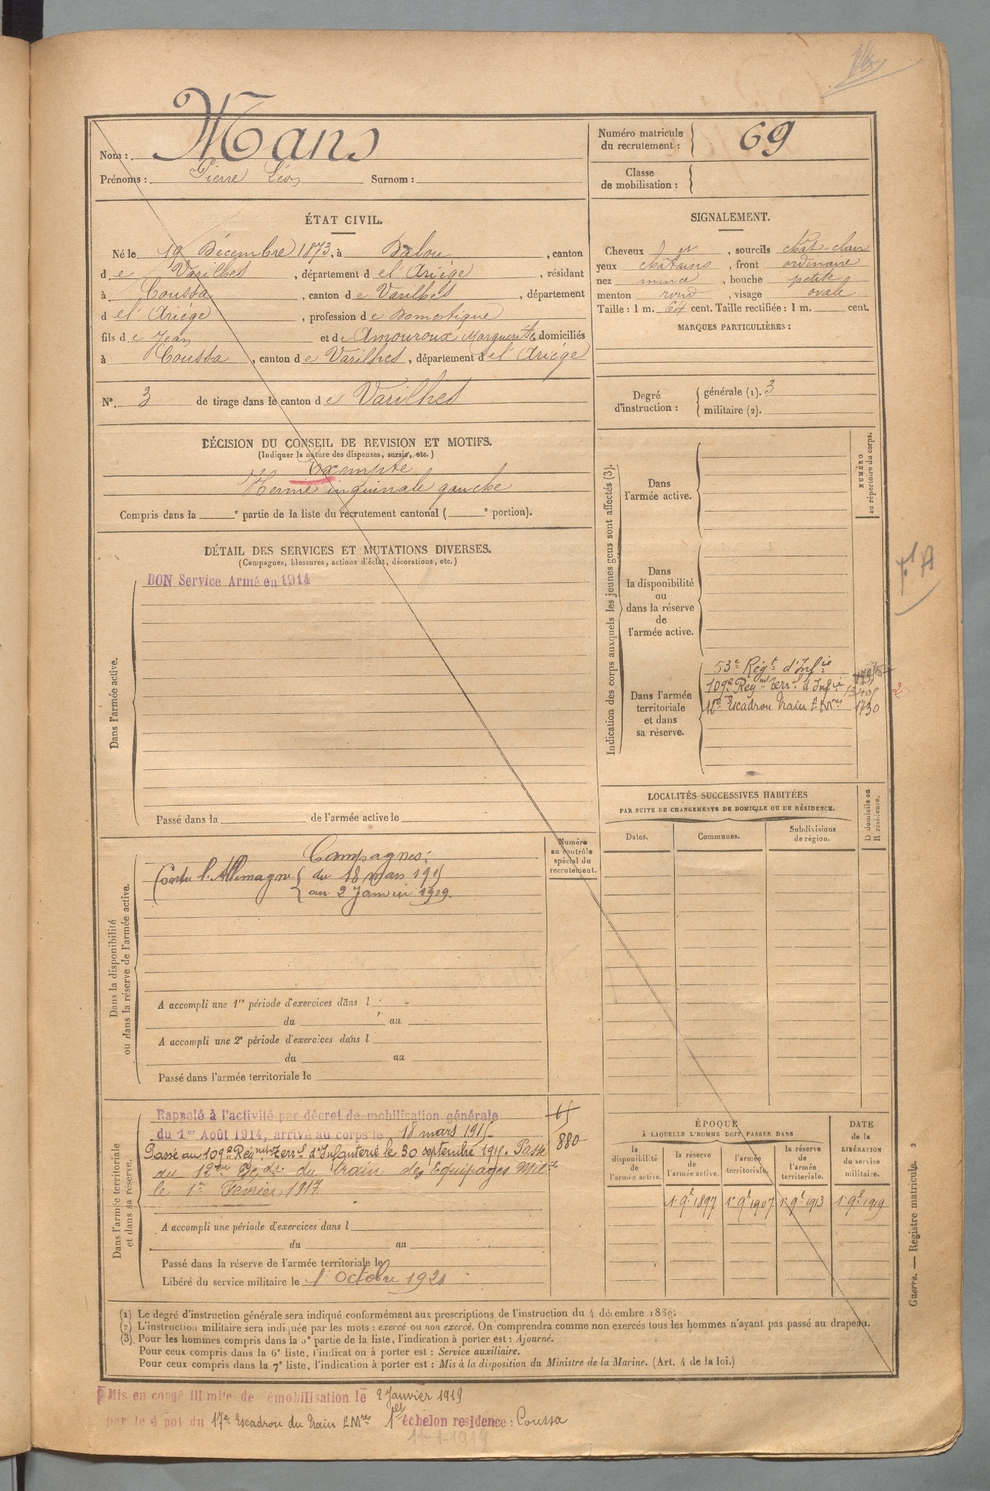 Nom: Mans
Prénoms: Pierre Léon Surnom:
Numéro matricule du recrutement: 69
Classe de mobilisation:
ÉTAT CIVIL.
Né le 19 Décembre 1873, à Dalou, canton
de Varilhes, département de l'Ariège, résidant
à Coussa, canton de Varilhes, département
de l'Ariège, profession de Domestique
fils de Jean et de Amouroux Marguerite, domiciliés
à Coussa, canton de Varilhes, département de l'Ariège
N° 3 de tirage dans le canton de Varilhes
SIGNALEMENT.
Cheveux et, sourcils chât-clair
yeux châtains, front ordinaire
nez mince, bouche petite
menton rond, visage ovale
Taille: 1 m. 64 cent. Taille rectifiée: 1 m. cent.
MARQUES PARTICULIÈRES:
Degré d'instruction: générale (1). 3
militaire (2).
DÉCISION DU CONSEIL DE REVISION ET MOTIFS.
(Indiquer la nature des dispenses, sursis, etc.)
Exempté
Hernie inguinale gauche
Compris dans la e partie de la liste du recrutement cantonal ( e portion).
DÉTAIL DES SERVICES ET MUTATIONS DIVERSES.
(Campagnes, blessures, actions d'éclat, décorations, etc.)
Dans l'armée active.
BON Service Armé en 1914
Passé dans la de l'armée active le
Indication des corps auxquels les jeunes gens sont affectés (3).
NUMÉRO au répertoire du corps.
Dans l'armée active.
Dans la disponibilité ou dans la réserve de l'armée active.
Dans l'armée territoriale et dans sa réserve.
53e Régt d'Infie
109e Regnt Terral d'Infie
Escadron Train E Mres 1730
LOCALITÉS SUCCESSIVES HABITÉES
PAR SUITE DE CHANGEMENTS DE DOMICILE OU DE RÉSIDENCE.
Dates. Communes. Subdivisions de région. D domicile ou R résidence.
Dans la disponibilité ou dans la réserve de l'armée active.
Numéro au contrôle spécial du recrutement.
Campagnes:
Contre l'Allemagne { du 18 mars 1915
au 2 Janvier 1919.
A accompli une 1re période d'exercices dans l
du au
A accompli une 2e période d'exercices dans l
du au
Passé dans l'armée territoriale le
Dans l'armée territoriale et dans sa réserve.
Rappelé à l'activité par décret de mobilisation générale
du 1er Août 1914, arrivé au corps le 18 mars 1915
880
Passé au 109e Regnt Terral d'Infanterie le 30 septembre 1915. Passé
au Train des Equipages Milre
le 1er Février 1917
A accompli une période d'exercices dans l
du au
Passé dans la réserve de l'armée territoriale le
Libéré du service militaire le 1er Octobre 1921
ÉPOQUE
À LAQUELLE L'HOMME DOIT PASSER DANS
la disponibilité de l'armée active. la réserve de l'armée active. l'armée territoriale. la réserve de l'armée territoriale.
DATE de la LIBÉRATION du service militaire.
1er 9e 1897 1er 9e 1907 1er 9e 1913 1er 9e 1919
Guerre. — Registre matricule. 2
(1) Le degré d'instruction générale sera indiqué conformément aux prescriptions de l'instruction du 4 décembre 1889.
(2) L'instruction militaire sera indiquée par les mots: exercé ou non exercé. On comprendra comme non exercés tous les hommes n'ayant pas passé au drapeau.
(3) Pour les hommes compris dans la 5e partie de la liste, l'indication à porter est: Ajourné.
Pour ceux compris dans la 6e liste, l'indication à porter est: Service auxiliaire.
Pour ceux compris dans la 7e liste, l'indication à porter est: Mis à la disposition du Ministre de la Marine. (Art. 4 de la loi.)
Mis en congé illimité de démobilisation le 2 Janvier 1919
par le dépot du 17e Escadron du Train E Mres 1er échelon residence: Coussa
11-1-1919